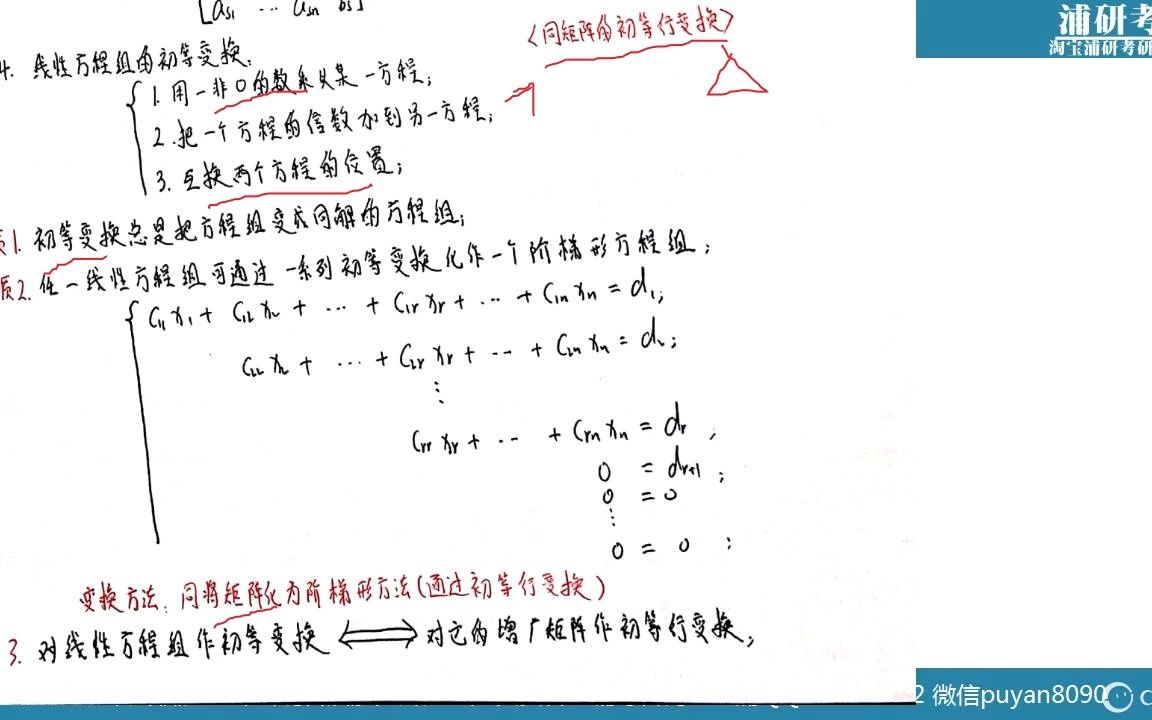 [a_{s1} ⋯ a_{sn} b_s]
4. 线性方程组的初等变换:
<同矩阵的初等行变换>
1. 用一非0的数乘某一方程;
2. 把一个方程的倍数加到另一方程;
3. 互换两个方程的位置;
质1. 初等变换总是把方程组变成同解的方程组;
质2. 任一线性方程组可通过一系列初等变换化作一个阶梯形方程组;
C₁₁x₁ + C₁₂x₂ + ⋯ + C₁ᵣxᵣ + ⋯ + C₁ₙxₙ = d₁;
C₂₂x₂ + ⋯ + C₂ᵣxᵣ + ⋯ + C₂ₙxₙ = d₂;
⋮
Cᵣᵣxᵣ + ⋯ + Cᵣₙxₙ = dᵣ,
0 = dᵣ₊₁;
0 = 0
⋮
0 = 0 ;
变换方法: 同将矩阵化为阶梯形方法(通过初等行变换)
3. 对线性方程组作初等变换 ⟺ 对它的增广矩阵作初等行变换;
浦研考
淘宝浦研考研
2 微信puyan8090